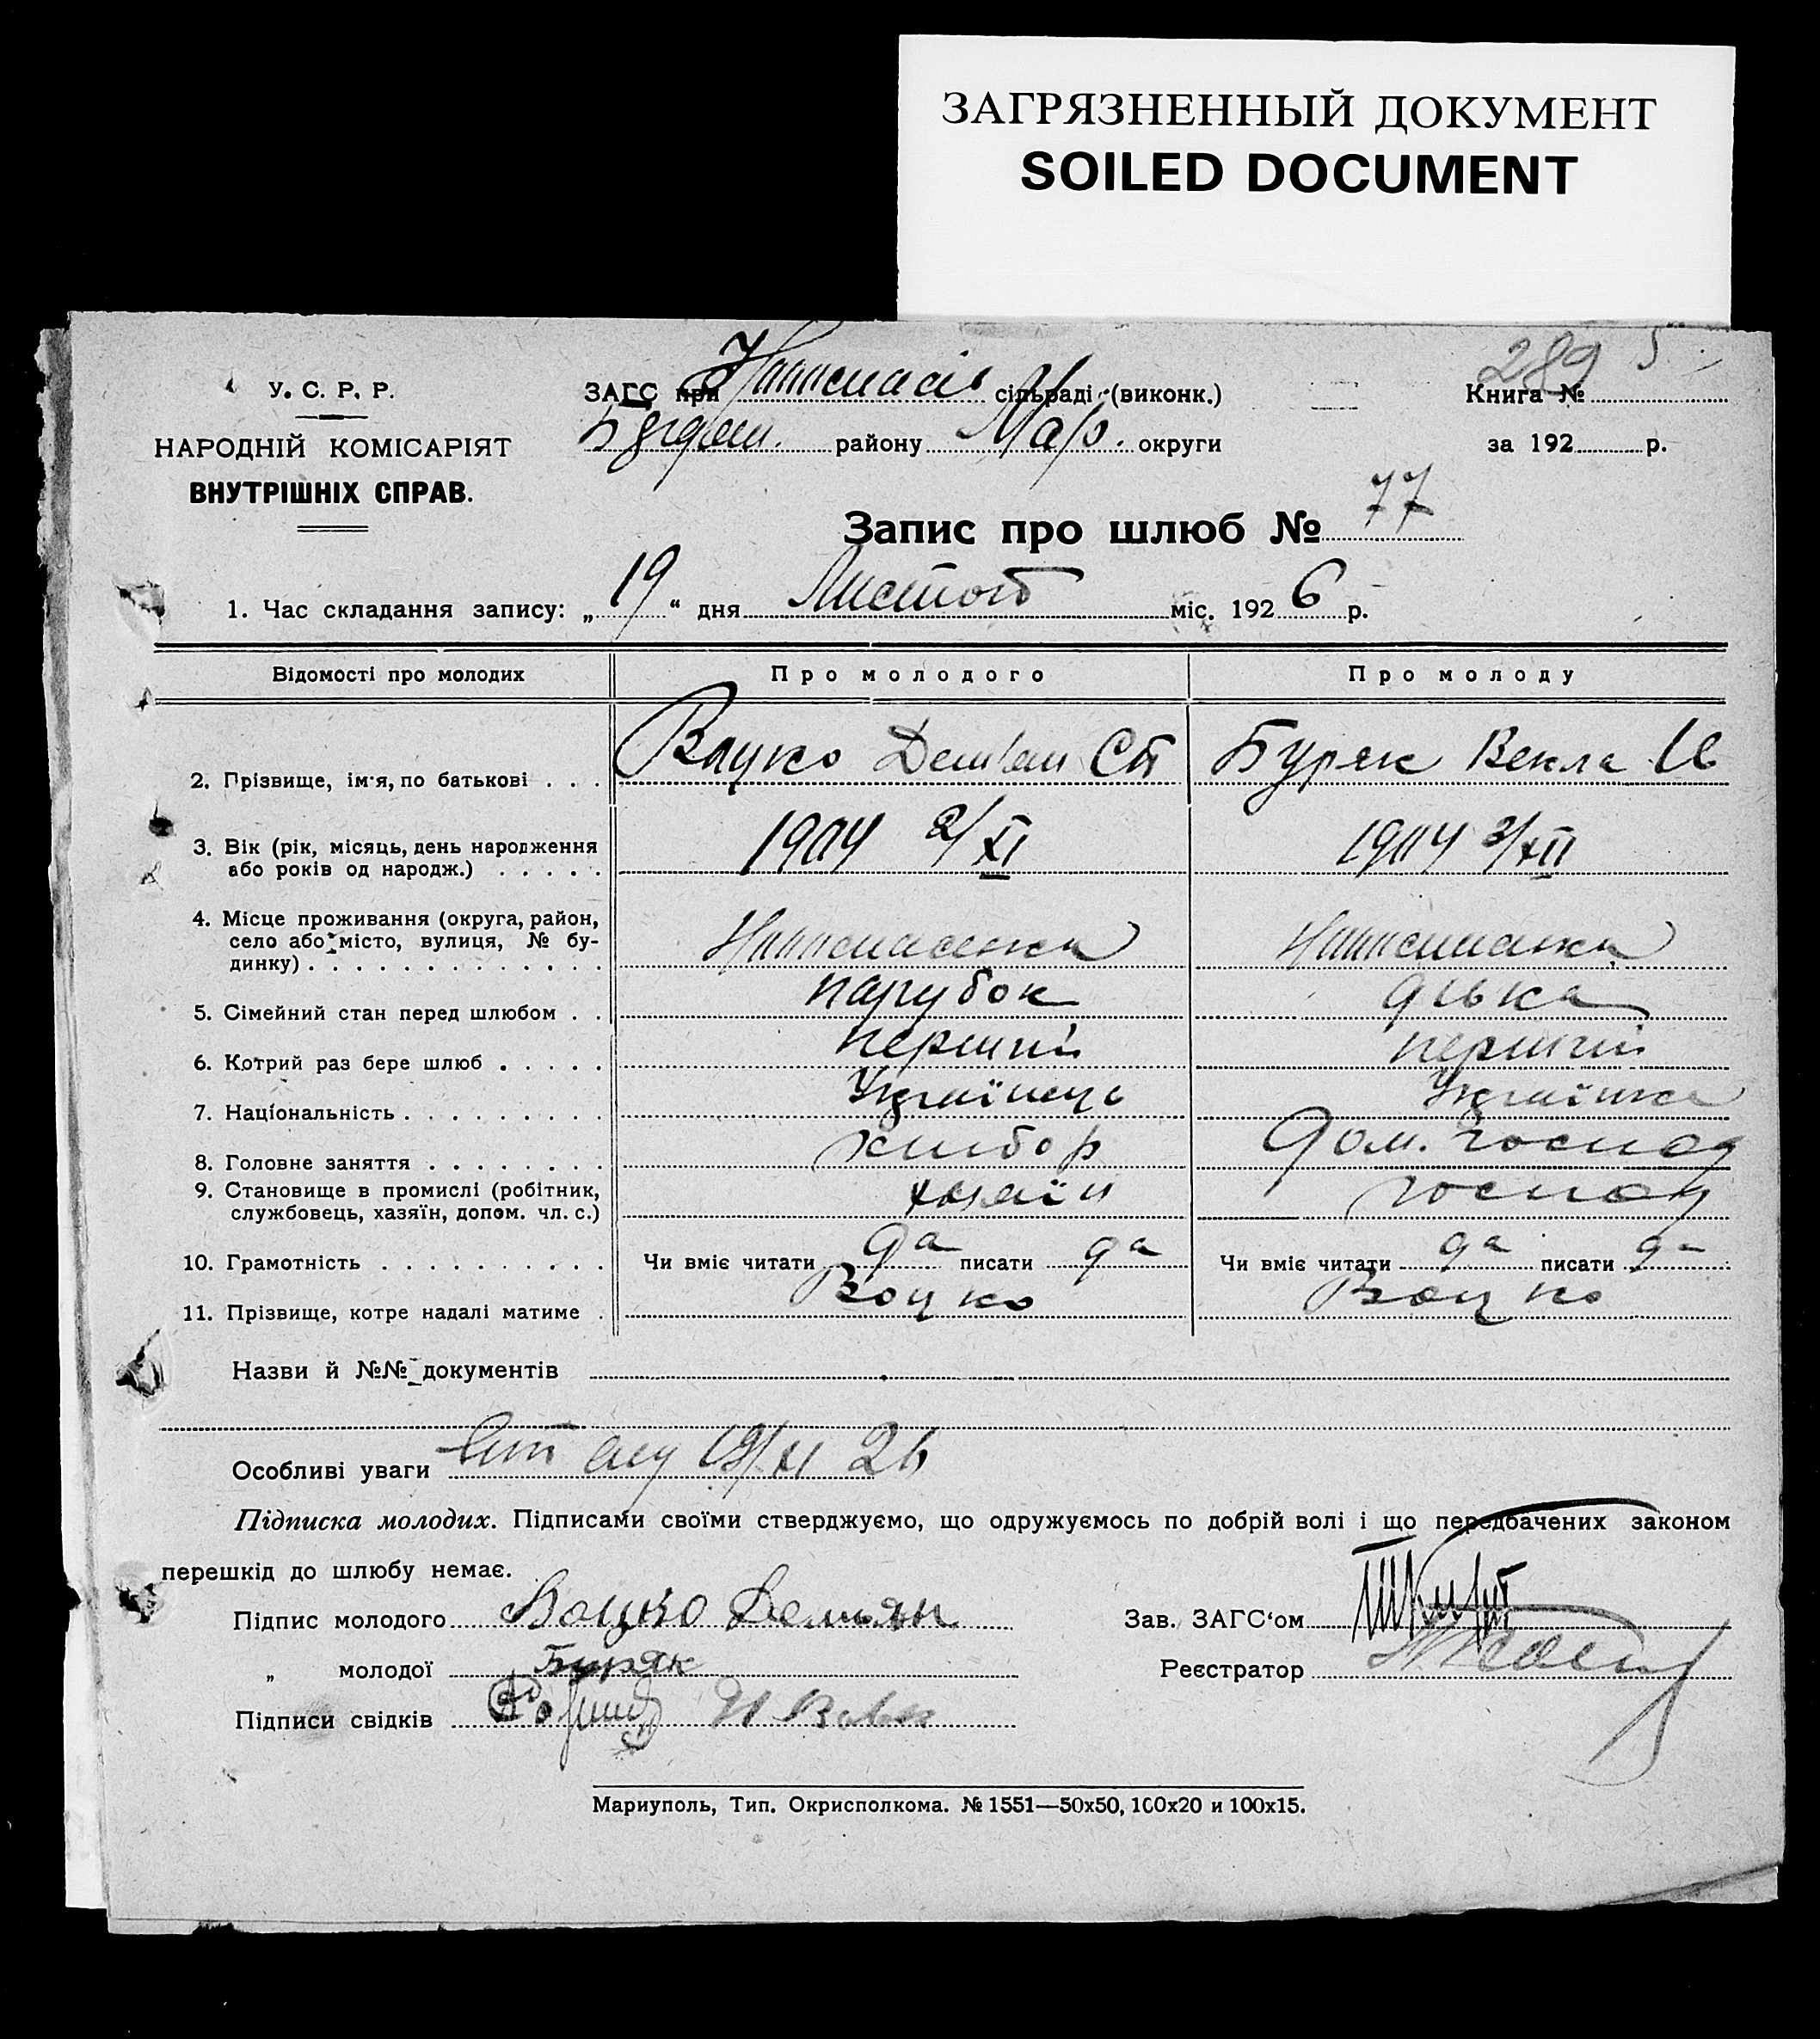 ЗАГРЯЗНЕННЫЙ ДОКУМЕНТ
SOILED DOCUMENT
289
У. С. Р. Р.
НАРОДНІЙ КОМІСАРІЯТ
ВНУТРІШНІХ СПРАВ.
ЗАГС при сільраді (виконк.)
району Мар. округи
Книга №
за 192 р.
Запис про шлюб № 77
1. Час складання запису: „19“ дня Листоп міс. 1926 р.
Відомості про молодих Про молодого Про молоду
2. Прізвище, ім'я, по батькові . . . Воцко Дем'ян Ст Буряк Векла Ів
3. Вік (рік, місяць, день народження
або років од народж.) . . . . . 1904 2/XI 1904 3/XII
4. Місце проживання (округа, район,
село або місто, вулиця, № бу-
динку) . . . . . . . . . . . . .
5. Сімейний стан перед шлюбом . . парубок дівка
6. Котрий раз бере шлюб . . . . . перший перший
7. Національність . . . . . . . . . Українець Українка
8. Головне заняття . . . . . . . . хлібор дом. господ
9. Становище в промислі (робітник,
службовець, хазяїн, допом. чл. с.) хазяїн господ
10. Грамотність . . . . . . . . . . Чи вміє читати да писати да Чи вміє читати да писати да
11. Прізвище, котре надалі матиме . Воцко Воцко
Назви й №№ документів
Особливі уваги 19/XI 26
Підписка молодих. Підписами своїми стверджуємо, що одружуємось по добрій волі і що передбачених законом
перешкід до шлюбу немає.
Підпис молодого Воцко Демян Зав. ЗАГС‘ом
„ молодої Буряк Реєстратор
Підписи свідків
Мариуполь, Тип. Окрисполкома. № 1551—50х50, 100х20 и 100х15.